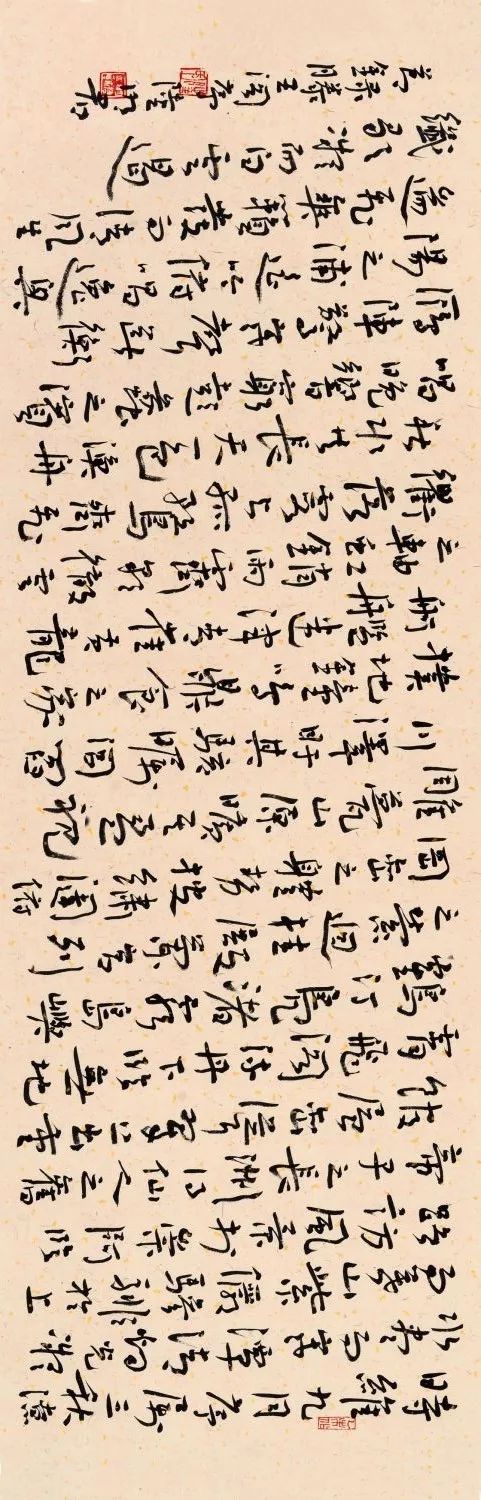 時維九月序屬三秋潦
水盡而寒潭清煙光凝
而暮山紫儼驂騑於上
路訪風景於崇阿臨
帝子之長洲得仙人之舊
館層巒聳翠上出重
霄飛閣流丹下臨無地
鶴汀鳧渚窮島嶼
之縈迴桂殿蘭宮列
岡巒之體勢披繡闥俯
雕甍山原曠其盈視
川澤紆其駭矚閭閻
撲地鐘鳴鼎食之家舸
艦迷津青雀黃龍
之軸虹銷雨霽彩徹雲
衢落霞與孤鶩齊飛
秋水共長天一色漁舟
唱晚響窮彭蠡之濱
雁陣驚寒聲斷衡
陽之浦遙吟俯暢逸興
遄飛爽籟發而清風生
纖歌凝而白雲遏
錄滕王閣序